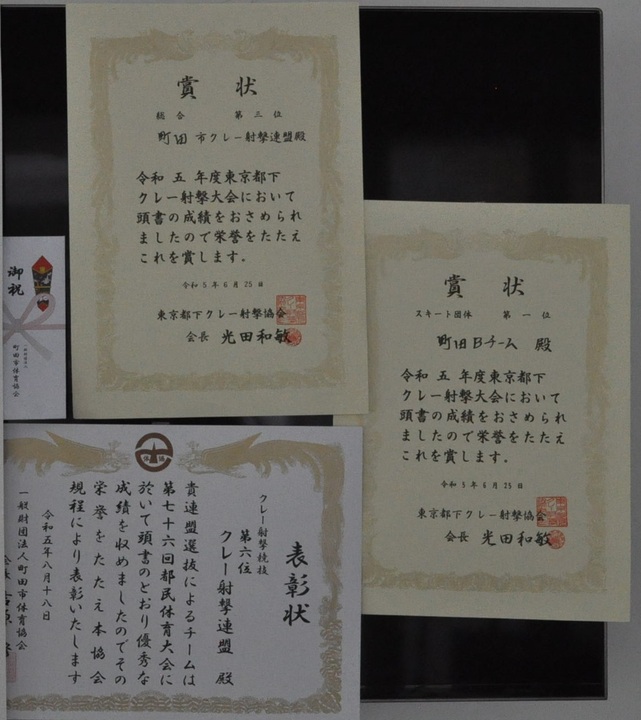 賞 状
総合 第三位
町田市クレー射撃連盟殿
令和五年度東京都下
クレー射撃大会において
頭書の成績をおさめられ
ましたので栄誉をたたえ
これを賞します。
令和5年6月25日
東京都下クレー射撃協会
会長 光田和敏
賞 状
スキート団体 第一位
町田Bチーム 殿
令和五年度東京都下
クレー射撃大会において
頭書の成績をおさめられ
ましたので栄誉をたたえ
これを賞します。
令和5年6月25日
東京都下クレー射撃協会
会長 光田和敏
御祝
町田市体育協会
表彰状
クレー射撃競技
第六位
クレー射撃連盟 殿
貴連盟選抜によるチームは
第七十六回都民体育大会に
於いて頭書のとおり優秀な
成績を収めましたのでその
栄誉をたたえ本協会
規程により表彰いたします
令和五年八月十八日
一般財団法人町田市体育協会